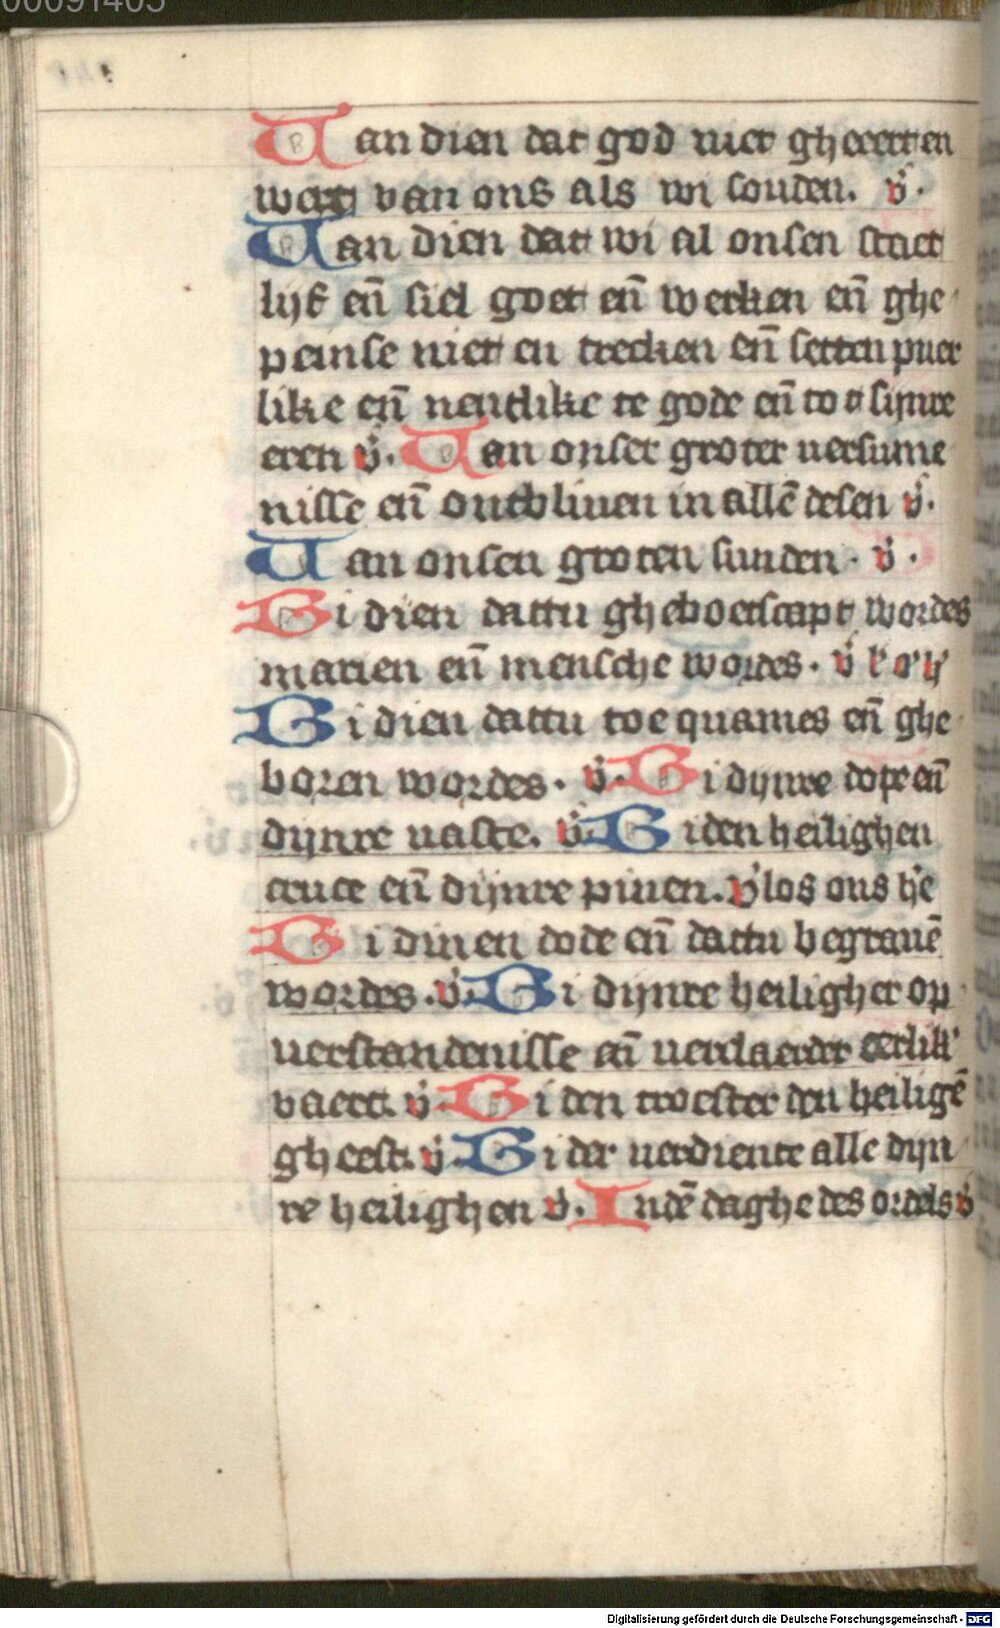 00091405
Uan dien dat god niet gheeert en
wert van ons als wi souden. v̊.
Uan dien dat wi al onsen staet
lijf en̄ siel goet en̄ werken en̄ ghe
peinse niet en trecken en̄ setten puer
like en̄ neutlike te gode en̄ to sijnre
eren v̊. Uan onser groter uersume
nisse en̄ ontbliuen in allē desen v̊.
Uan onsen groten sunden. v̊.
Bi dien dattu gheboetscapt wordes
marien en̄ mensche wordes. v̊
Bi dien dattu toe quames en̄ ghe
boren wordes. v̊. Bi dijnre dope en̄
dijnre uaste. v̊. Bi den heilighen
cruce en̄ dijnre pinen. v̊ los ons h'e
Bi dinen dode en̄ dattu begrauē
wordes. v̊. Bi dijnre heiligher op
uerstandenisse en̄ uerclaerder
vaert. v̊. Bi den troester den heiligē
gheest. v̊. Bi der uerdiente alle dijn
re heilighen v̊. In dē daghe des ordels v̊
Digitalisierung gefördert durch die Deutsche Forschungsgemeinschaft - DFG